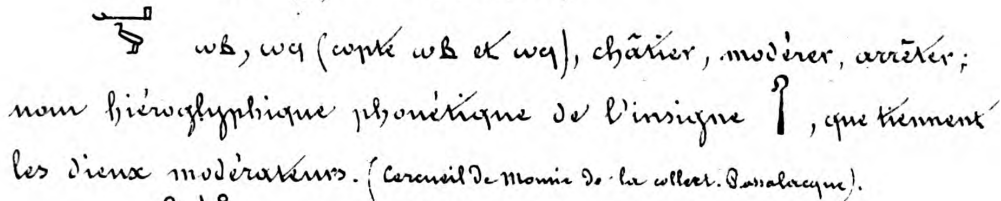 ⲱⲃ, ⲱϥ (copte ⲱⲃ et ⲱϥ), châtier, modérer, arrêter;
nom hiéroglyphique phonétique de l'insigne , que tiennent
les dieux modérateurs. (Cercueil de Momie de la collect. Passalacque).